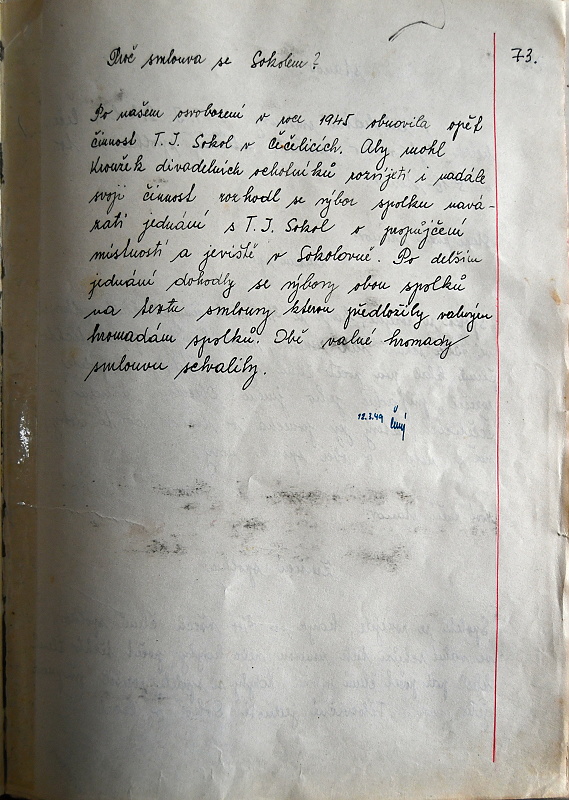 73.
Proč smlouva se Sokolem?
Po našem osvobození v roce 1945 obnovila opět
činnost T. J. Sokol v Čečelicích. Aby mohl
Kroužek divadelních ochotníků rozvíjeti i nadále
svoji činnost rozhodl se výbor spolku navá-
zati jednání s T. J. Sokol o propůjčení
místností a jeviště v Sokolovně. Po delším
jednání dohodly se výbory obou spolků
na textu smlouvy kterou předložily valným
hromadám spolků. Obě valné hromady
smlouvu schválily.
12.3.49